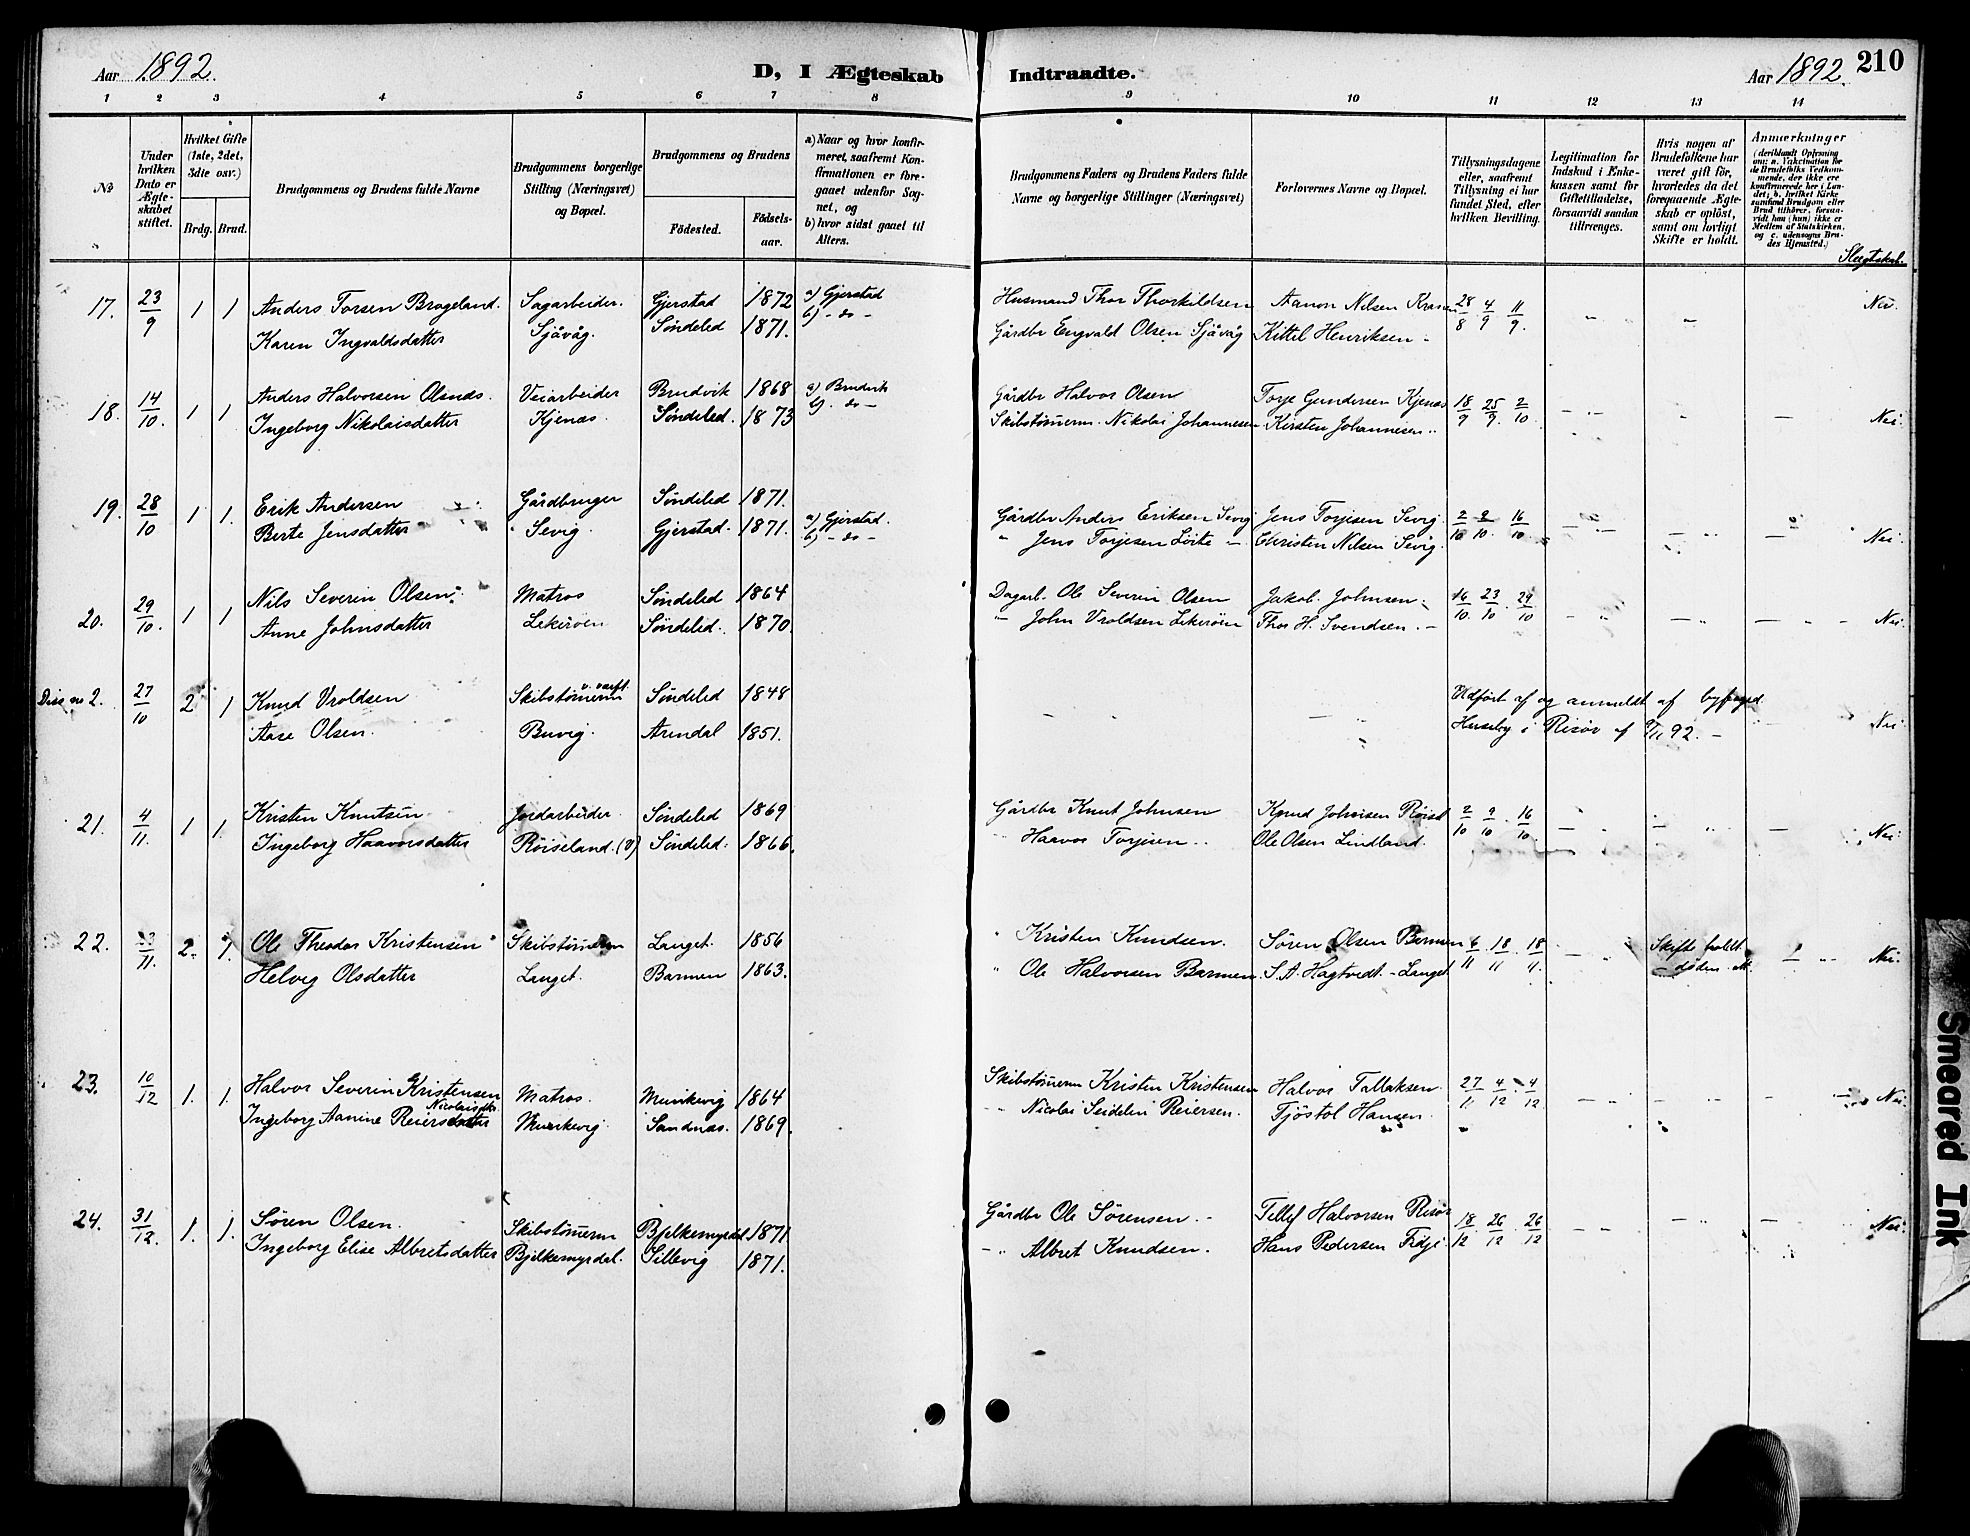 Aar 1892.
D, I Ægteskab Indtraadte.
Aar 1892. 210
1 2 3 4 5 6 7 8 9 10 11 12 13 14
No
Under hvilken Dato er Ægteskabet stiftet.
Hvilket Gifte (1ste, 2det, 3die osv.)
Brdg. Brud.
Brudgommens og Brudens fulde Navne
Brudgommens borgerlige Stilling (Næringsvei) og Bopæl.
Brudgommens og Brudens
Fødested. Fødselsaar.
a) Naar og hvor konfirmeret, saafremt Konfirmationen er foregaaet udenfor Sognet, og
b) hvor sidst gaaet til Alters.
Brudgommens Faders og Brudens Faders fulde Navne og borgerlige Stillinger (Næringsvei)
Forlovernes Navne og Bopæl.
Tillysningsdagene eller, saafremt Tillysning ei har fundet Sted, efter hvilken Bevilling.
Legitimation for Indskud i Enkekassen samt for Giftetilladelse, forsaavidt saadan tiltrænges.
Hvis nogen af Brudefolkene har været gift før, hvorledes da det foregaaende Ægteskab er opløst, samt om lovligt Skifte er holdt.
Anmærkninger
(deriblandt Oplysning om: a. Vakcination for de Brudefolks Vedkommende, der ikke ere konfirmerede her i Landet; b. hvilket Kirkesamfund Brudgom eller Brud tilhører, forsaavidt han (hun) ikke er Medlem af Statskirken, og c. udensogns Brudes Hjemsted.)
Slegtskab.
17. 23/9 1 1 Anders Torsen Brogeland. Sagarbeider. Gjerstad 1872 a) Gjerstad Husmand Thor Thorkildsen Aanon Nilsen 28/8 4/9 11/9. Nei.
Karen Ingvaldsdatter Sjåvåg. Søndeled 1871. b) - do - Gårdbr Engvald Olsen Sjåvåg Kittil Henriksen -
18. 14/10. 1 1 Anders Halvorsen Olsnes. Veiarbeider Brudvik 1868 a) Brudvik Gårdbr Halvor Olsen Torje Gundersen Kjenås 18/9 25/9. 2/10 Nei.
Ingeborg Nikolaisdatter Kjenås Søndeled. 1873 b). do - Skibstømerm. Nikolai Johannesen. Kirsten Johannesen "
19. 28/10 1 1. Erik Andersen Gårdbruger Søndeled 1871. Gårdbr Anders Eriksen Sevig Jens Torjesen Sevig. 2/10 9/10. 16/10. Nei.
Berte Jensdatter Sevig. Gjerstad. 1871. a) Gjerstad. b) - do - " Jens Torjesen Løite - Christen Nilsen Sevig.
20. 29/10. 1 1 Nils Severin Olsen Matros Søndeled 1864 Dagarb. Ole Severin Olsen Jakob Johnsen 16/10. 23/10. 29/10 Nei.
Anne Johnsdatter Lekerøen Søndeled. 1870. " John Vroldsen Lekerøen Thor H. Svendsen. -
Diss no 2. 27/10 2 1 Knud Vroldsen Skibstømerm v. værft Søndeled 1848 Udført af og anmeldt af byfoged Nei
Aase Olsen. Buvig. Arendal 1851. Huseby i Risør af 9/11 92. -
21. 4/11. 1 1. Kristen Knutsen Jordarbeider. Søndeled 1869 Gårdbr Knut Johnsen Knud Johnsen Røisl 2/10 9/10 16/10. Nei.
Ingeborg Haavorsdatter Røiseland. (V) Søndeled. 1866. " Haavor Torjesen Ole Olsen Lindland.
22. /11. 2. 1. Ole Theodor Kristensen Skibstømerm Langet. 1856 " Kristen Knudsen. Søren Olsen Barmen 6/11 18/11 18/4. Skifte holdt Nei.
Helvig Olsdatter Langet. Barmen 1863. " Ole Halvorsen Barmen. S. A. Hagtvedt. - Langet
23. 10/12 1. 1. Halvor Severin Kristensen Matros. Munkevig 1864 Skibstømerm Kristen Kristensen Halvor Tallaksen. 27/11 4/12 4/12 Nei.
Ingeborg Aanine Reiersdatter Nicolaisdtr. Munkevig. Sandnæs. 1869. " Nicolai Seidelin Reiersen. Tjøstol Hansen.
24. 31/12. 1. 1. Søren Olsen. Skibstømerm Bjelkemyrdal 1871 Gårdbr Ole Sørensen. - Tellef Halvorsen Risør 18/12 26/12 26/12 Nei.
Ingeborg Elise Albretsdatter Bjelkemyrdal. Sillevig 1871. - " Albret Knudsen. Hans Pedersen
Smeared Ink